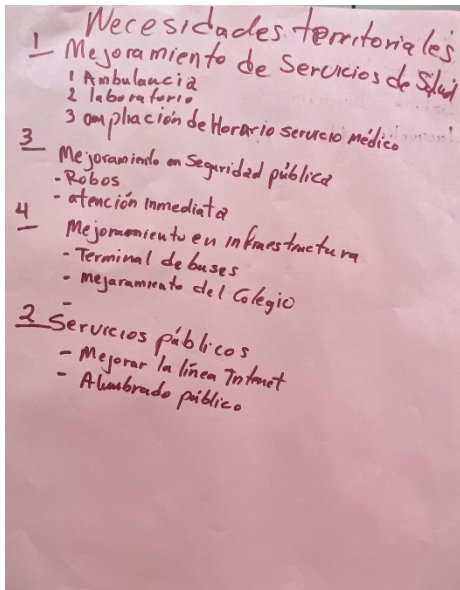 Necesidades territoriales
1 Mejoramiento de Servicios de Salud
1 Ambulancia
2 laboratorio
3 ampliación de Horario servicio médico
3 Mejoramiento en Seguridad pública
- Robos
- atención inmediata
4 Mejoramiento en infraestructura
- Terminal de buses
- mejaramiento del Colegio
-
2 Servicios públicos
- Mejorar la línea Internet
- Alumbrado público